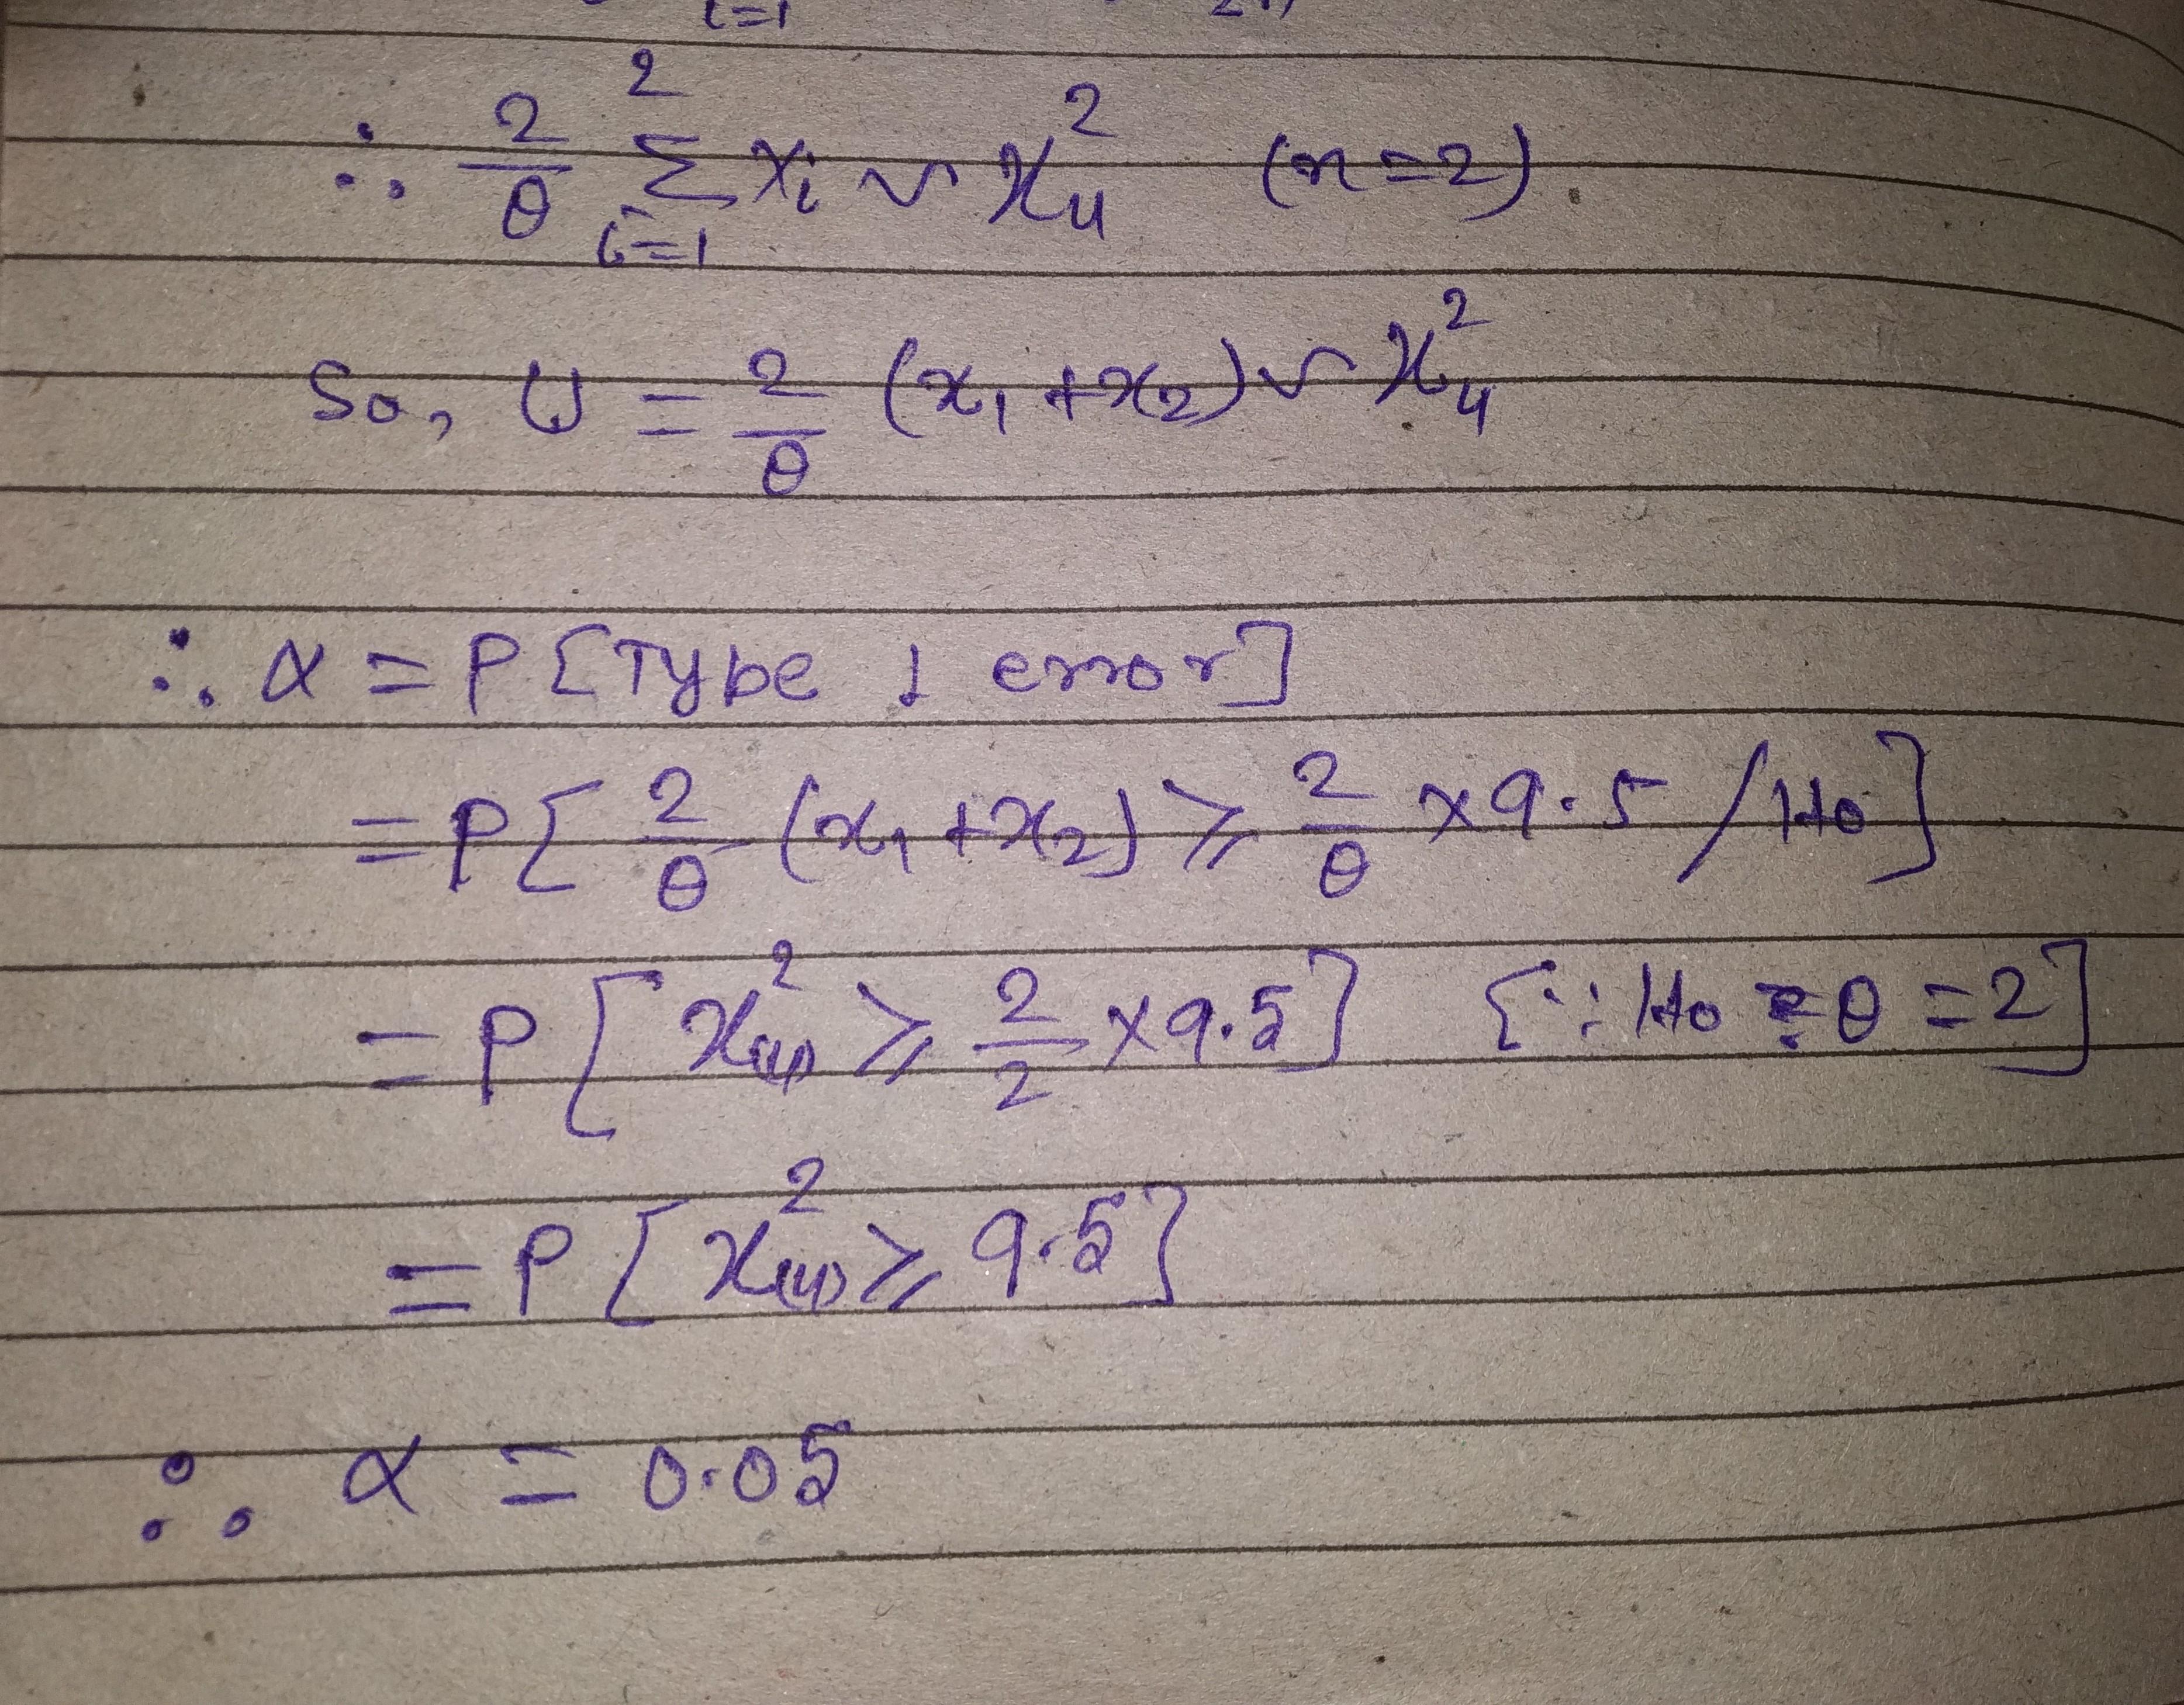 i=1 2n
∴ 2/θ Σ_{i=1}^{2} Xi ~ χ²₄ (n=2).
So, U = 2/θ (x₁+x₂) ~ χ²₄
∴ α = P[Type 1 error]
= P[2/θ (x₁+x₂) ≥ 2/θ × 9.5 / H₀]
= P[χ²₍₄₎ ≥ 2/2 × 9.5] [∵ H₀ : θ = 2]
= P[χ²₍₄₎ ≥ 9.5]
∴ α = 0.05